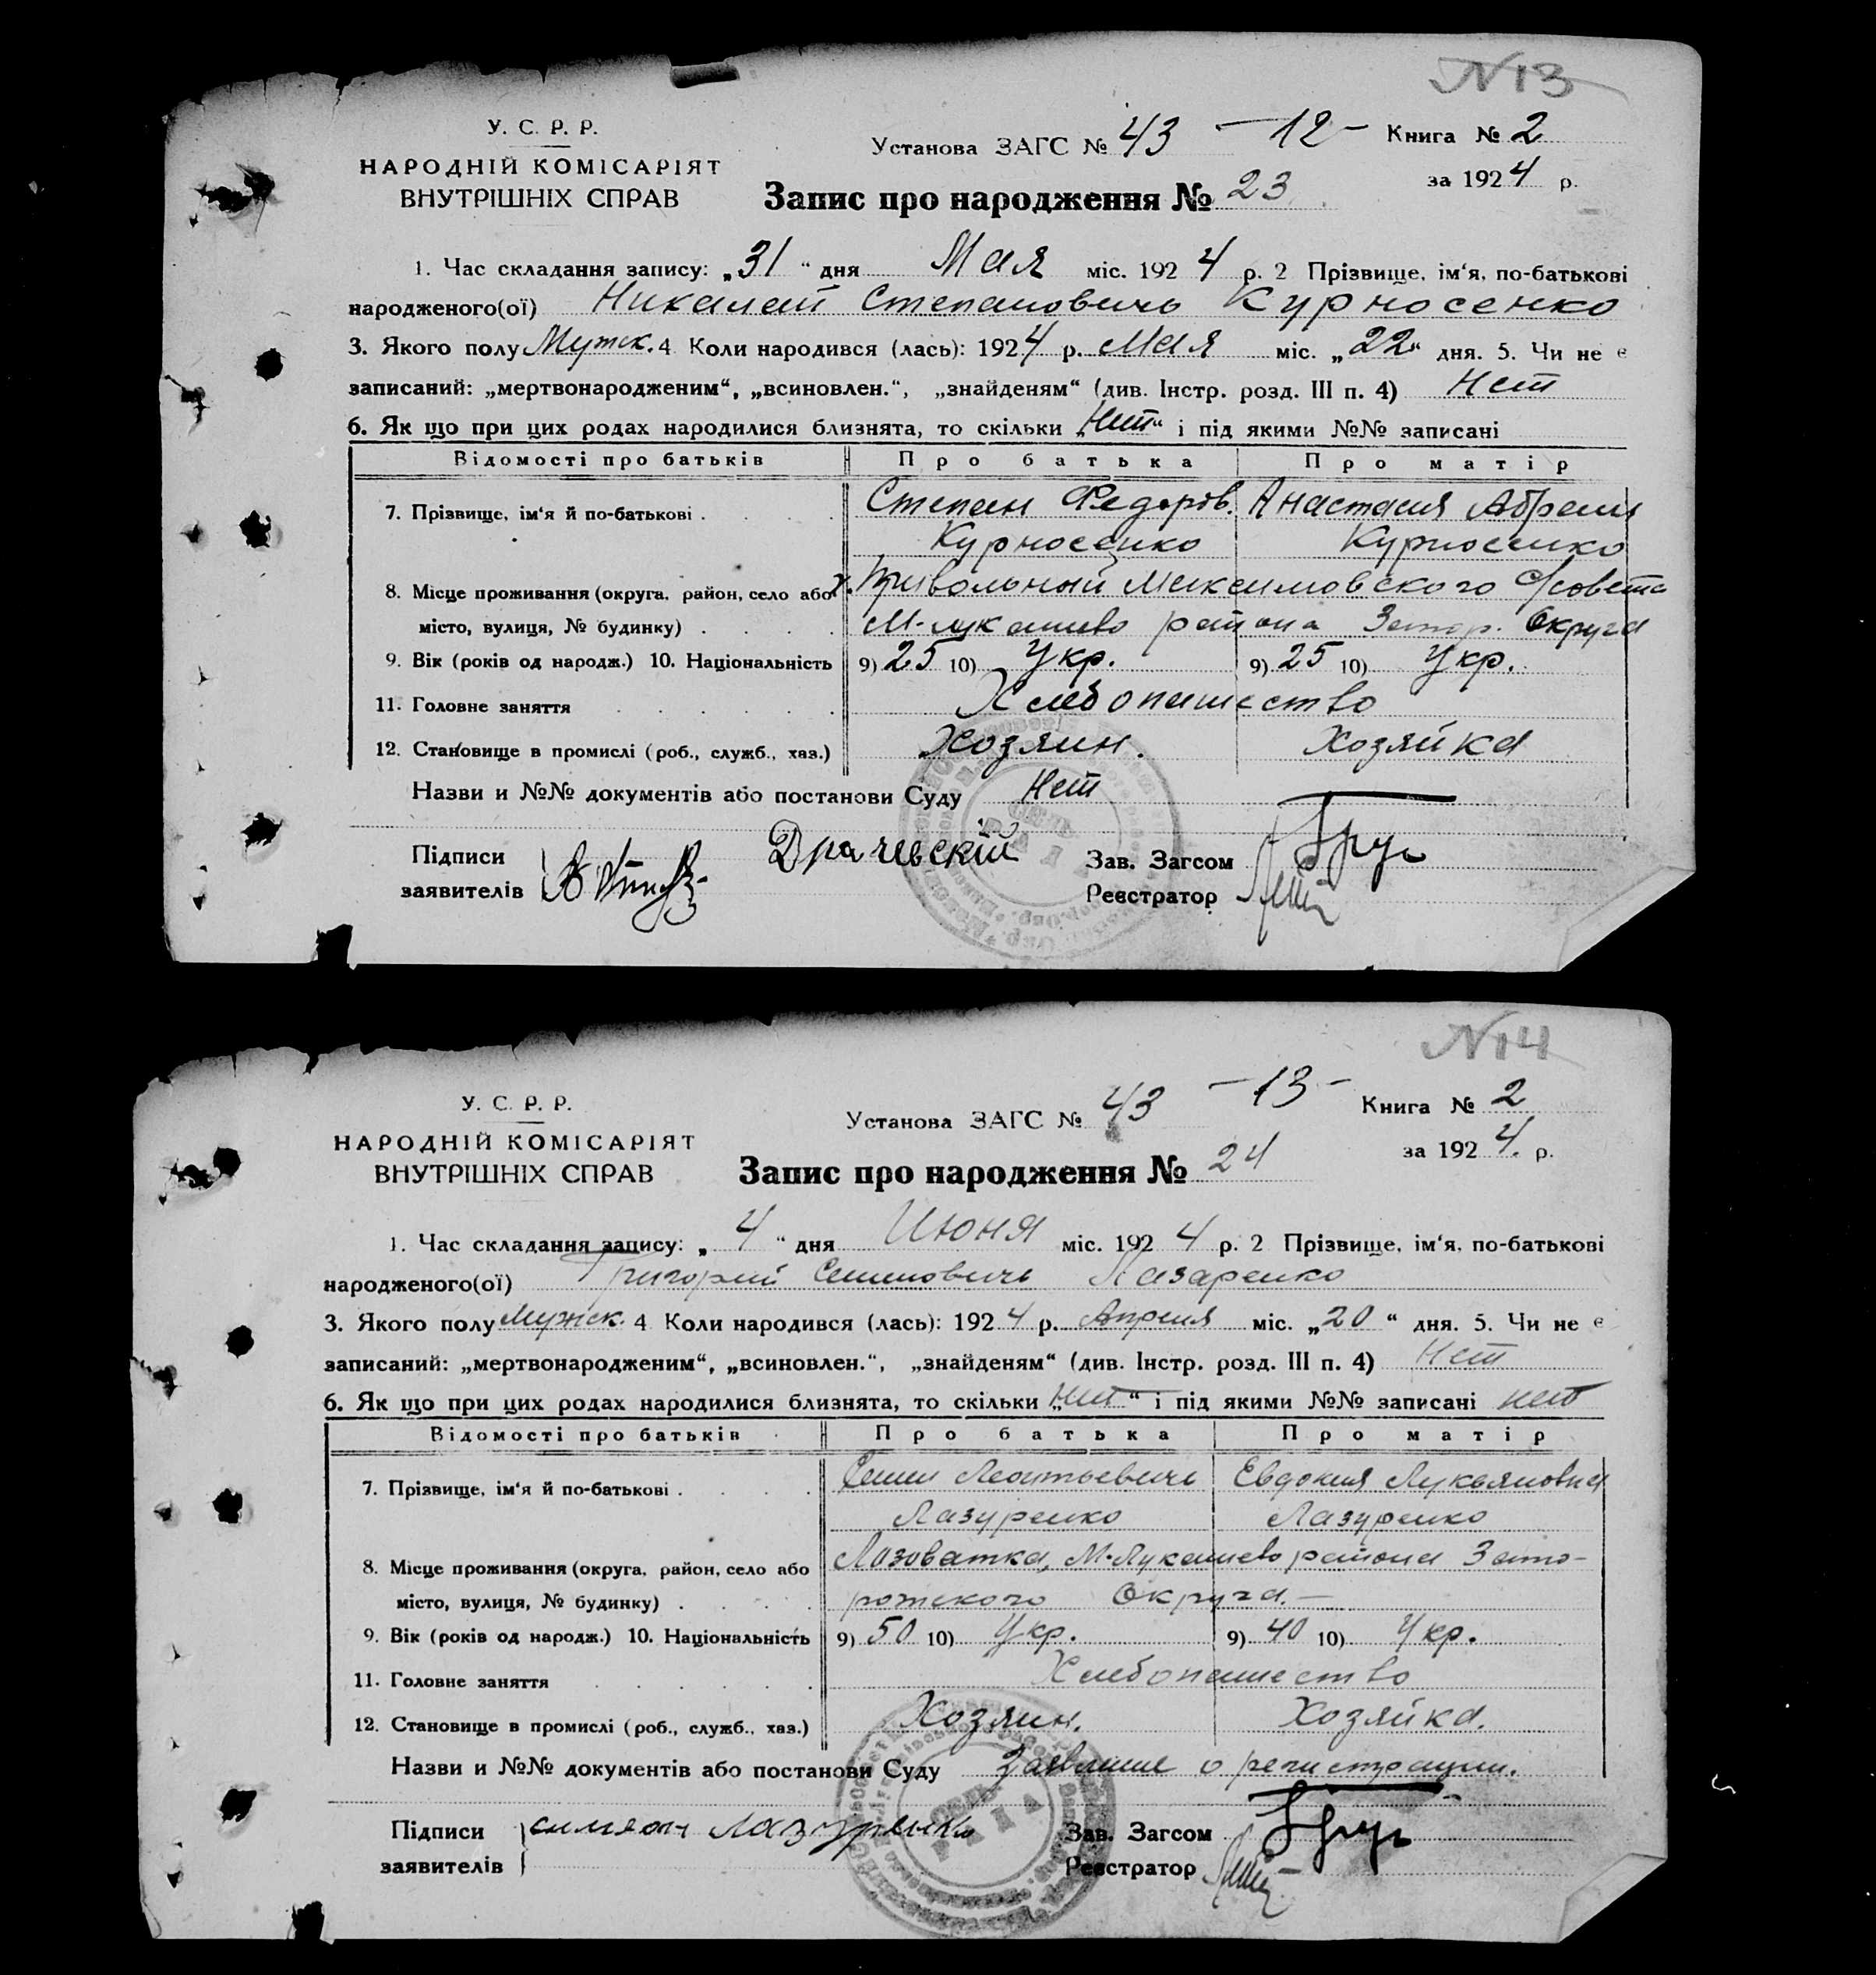 N13
У. С. Р. Р.
НАРОДНІЙ КОМІСАРІЯТ
ВНУТРІШНІХ СПРАВ
Установа ЗАГС № 43 -12- Книга № 2
за 1924 р.
Запис про народження № 23
1. Час складання запису: „31“ дня Мая міс. 1924 р. 2 Прізвище, ім‘я, по-батькові
народженого(ої) Николай Степановичь Курносенко
3. Якого полу Мужск. 4 Коли народився (лась): 1924 р. Мая міс. „22“ дня. 5. Чи не є
записаний: „мертвонародженим“, „всиновлен.“, „знайденям“ (див. Інстр. розд. III п. 4) Нет
6. Як що при цих родах народилися близнята, то скільки „Нет“ і під якими №№ записані
Відомості про батьків Про батька Про матір
7. Прізвище, ім‘я й по-батькові . Степан Федоров. Анастасия Абрам
Курносенко Курносенко
8. Місце проживання (округа, район, село або х. Привольный Максимовского С/совета
місто, вулиця, № будинку) . М-Лукашево района Запор. Округа
9. Вік (років од народж.) 10. Національність 9) 25 10) Укр. 9) 25 10) Укр.
11. Головне заняття Хлебопашество
12. Становище в промислі (роб., служб., хаз.) Хозяин. Хозяйка
Назви и №№ документів або постанови Суду Нет
Підписи Драчевскій Зав. Загсом
заявителів Реєстратор
N14
У. С. Р. Р.
НАРОДНІЙ КОМІСАРІЯТ
ВНУТРІШНІХ СПРАВ
Установа ЗАГС № 43 -13- Книга № 2
за 1924. р.
Запис про народження № 24
1. Час складання запису: „4“ дня Июня міс. 1924 р. 2 Прізвище, ім‘я, по-батькові
народженого(ої) Григорий Семеновичь Лазаренко
3. Якого полу Мужск. 4 Коли народився (лась): 1924 р. Апреля міс. „20“ дня. 5. Чи не є
записаний: „мертвонародженим“, „всиновлен.“, „знайденям“ (див. Інстр. розд. III п. 4) Нет
6. Як що при цих родах народилися близнята, то скільки „Нет“ і під якими №№ записані нет
Відомості про батьків Про батька Про матір
7. Прізвище, ім‘я й по-батькові . Семен Леонтьевичь Евдокия Лукьяновна
Лазуренко Лазуренко
8. Місце проживання (округа, район, село або Лозоватка, М-Лукашево района Запо-
місто, вулиця, № будинку) . рожского Округа.-
9. Вік (років од народж.) 10. Національність 9) 50 10) Укр. 9) 40 10) Укр.
11. Головне заняття Хлебопашество
12. Становище в промислі (роб., служб., хаз.) Хозяин. Хозяйка.
Назви и №№ документів або постанови Суду Заявление о регистрации.
Підписи симеон Лазуренко Зав. Загсом
заявителів Реєстратор